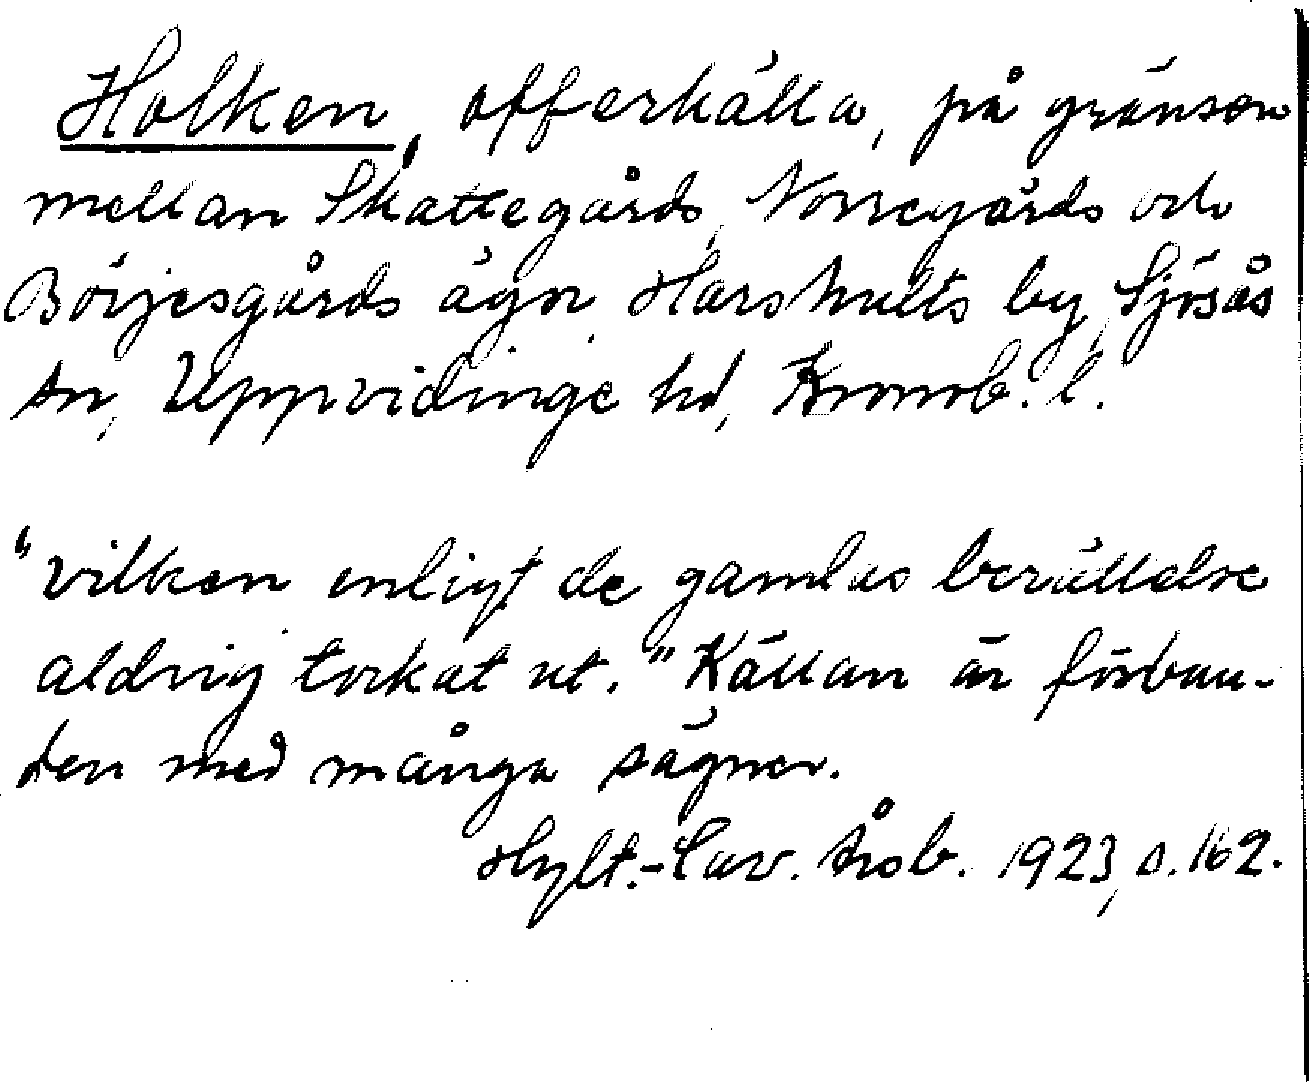 Holken, offerkälla, på gränsen
mellan Skattegårds, Norregårds och
Börjesgårds ägor, Harshults by, Sjösås
sn, Uppvidinge hd, Kronob. l.
"vilken enligt de gamlas berättelse
aldrig torkat ut." Källan är förbun-
den med många sägner.
Hylt.-Cav. årsb. 1923, s. 162.